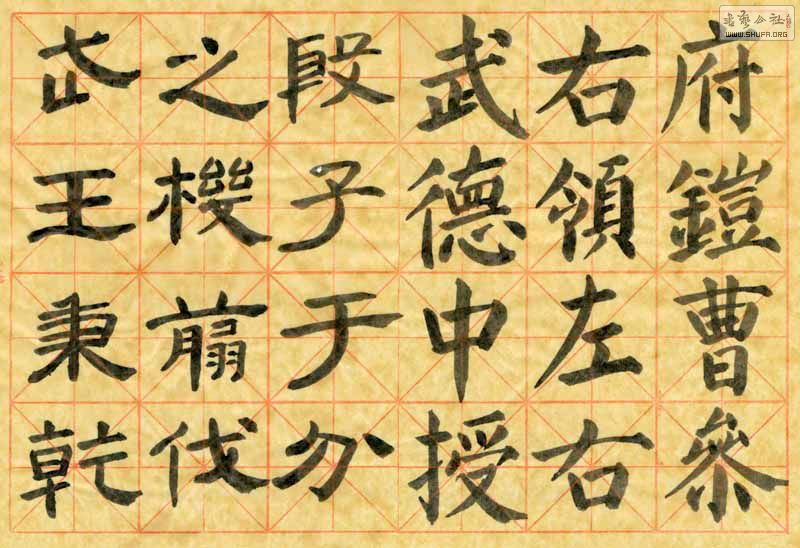 府鎧曹參
右領左右
武德中授
段子于分
之機翦伐
王秉乾
書藝公社
WWW.SHUFA.ORG